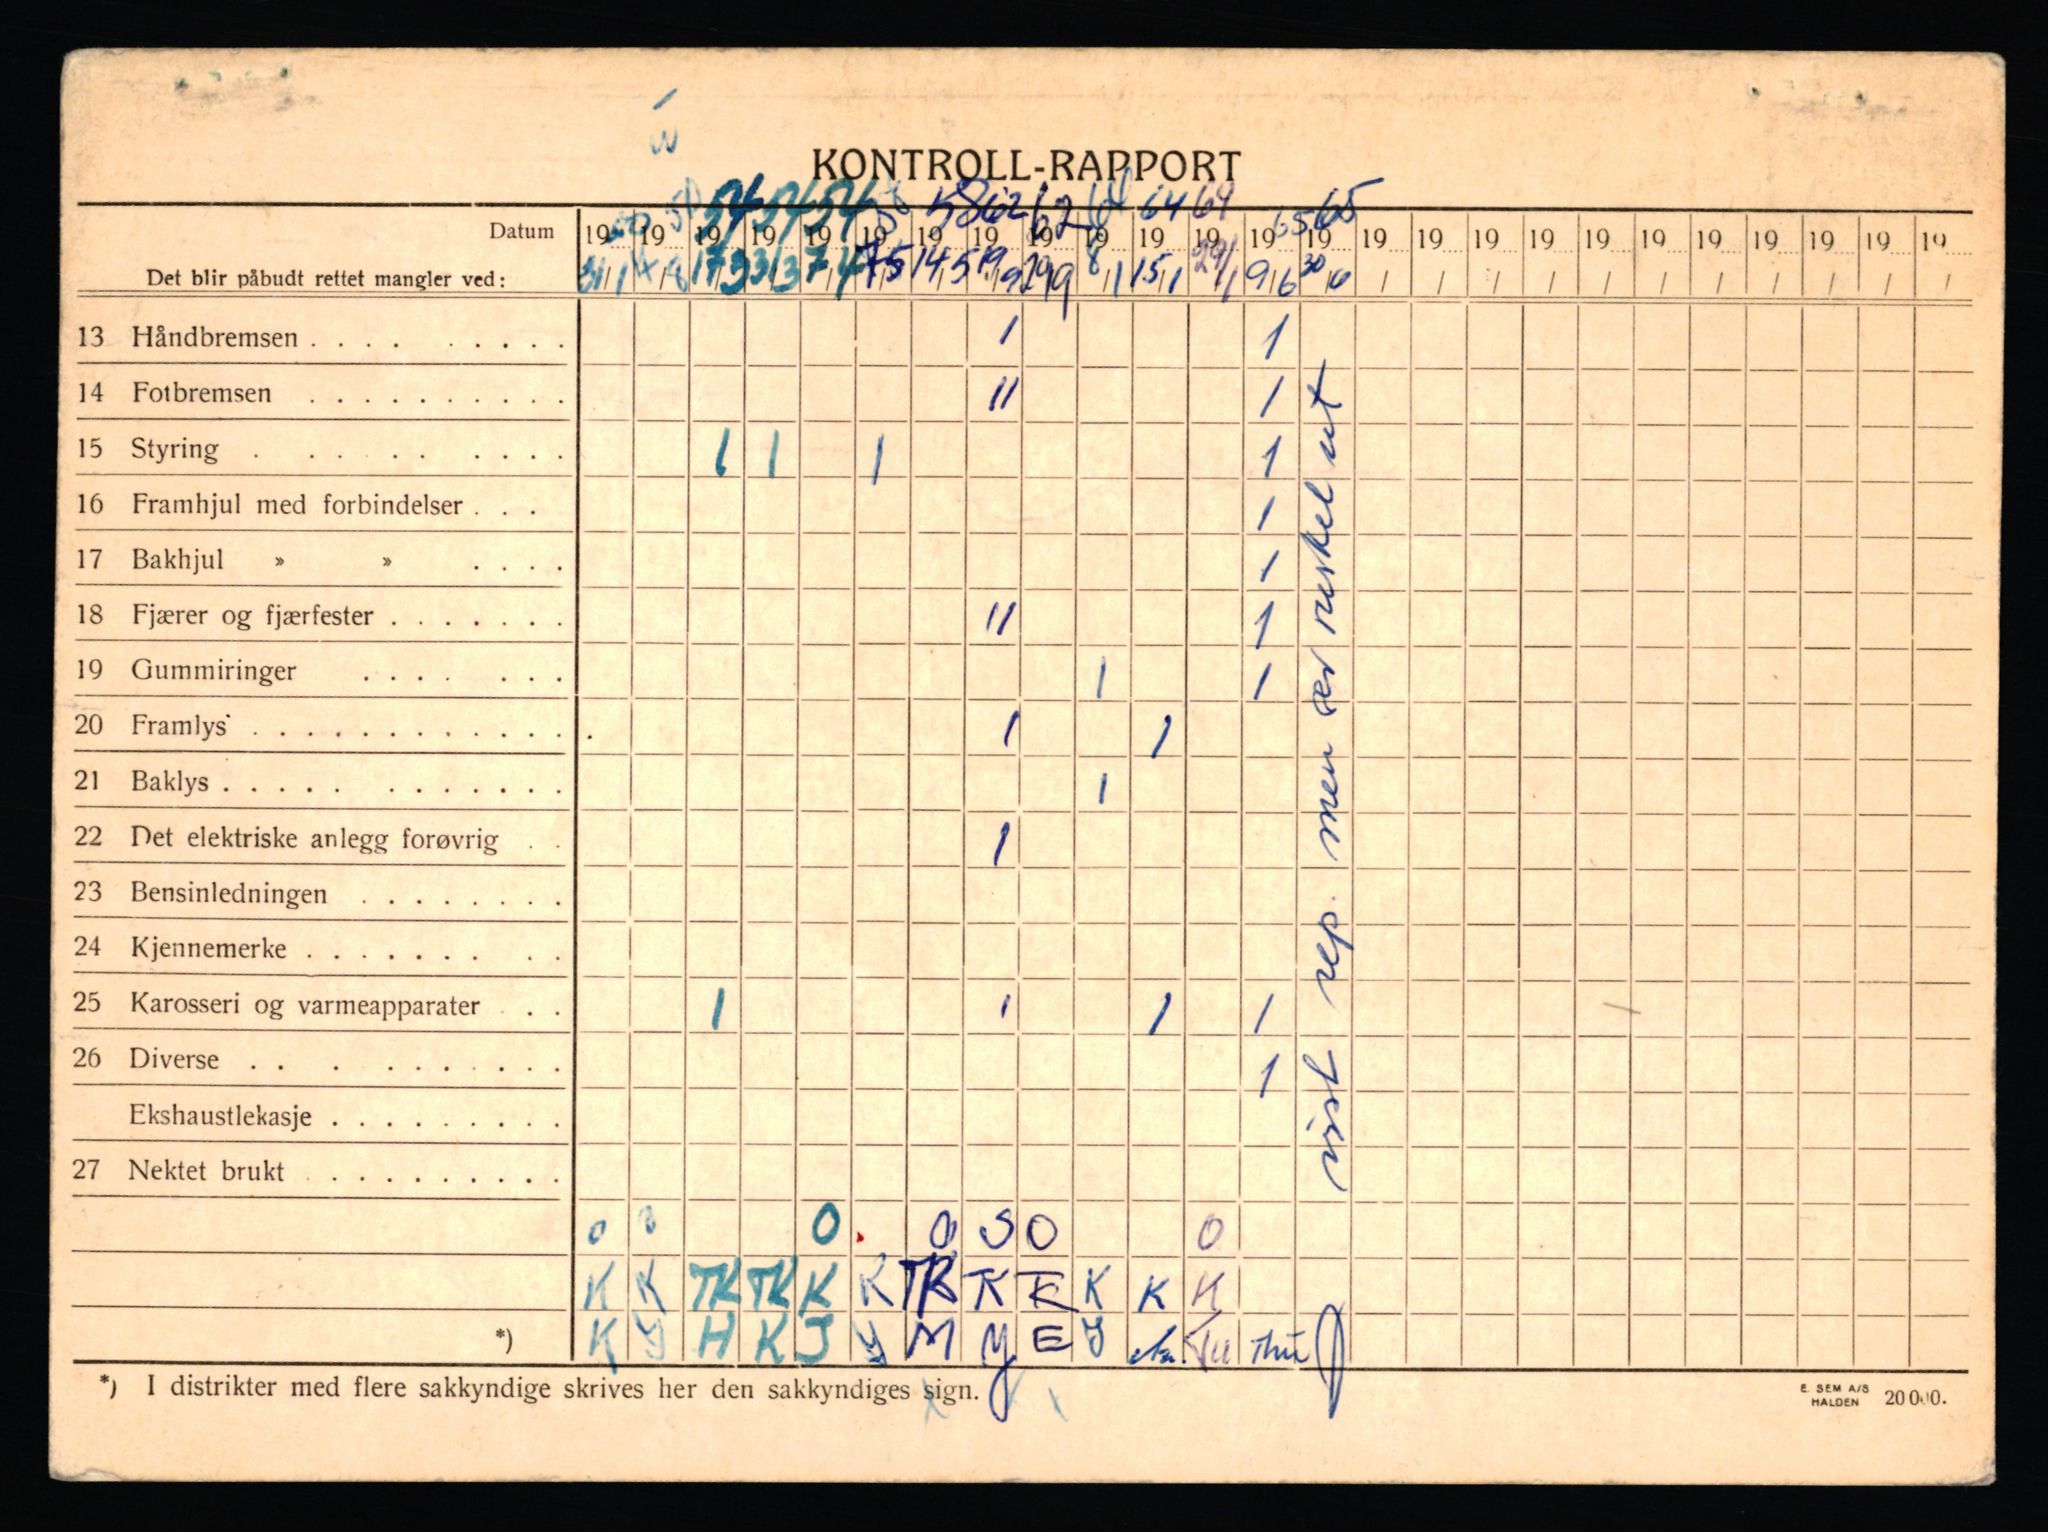 KONTROLL-RAPPORT
54 54 54 58 58 62 62 64 64 64 65 65
Datum 19 19 19 19 19 19 19 19 19 19 19 19 19 19 19 19 19 19 19 19 19 19 19 19 19
Det blir påbudt rettet mangler ved: 31/1 17/3 31/3 7/4 7/5 14/5 19/9 29/9 8/1 15/1 29/1 9/6 30/6 / / / / / / / / / / /
13 Håndbremsen 1 1
14 Fotbremsen 11 1
15 Styring 1 1 1 1
16 Framhjul med forbindelser 1
17 Bakhjul » » 1
18 Fjærer og fjærfester 11 1
19 Gummiringer 1 1
20 Framlys 1 1
21 Baklys 1
22 Det elektriske anlegg forøvrig 1
23 Bensinledningen
24 Kjennemerke
25 Karosseri og varmeapparater 1 1 1 1
26 Diverse 1
Ekshaustlekasje
27 Nektet brukt
vist rep. men ær ruskel ut
0 0 0 S 0 0
K K TK TK K K TK TK TK K K K
*) K J H K J Y M Y E Y Tu Thu
*) I distrikter med flere sakkyndige skrives her den sakkyndiges sign.
E. SEM A/S
HALDEN 20000.